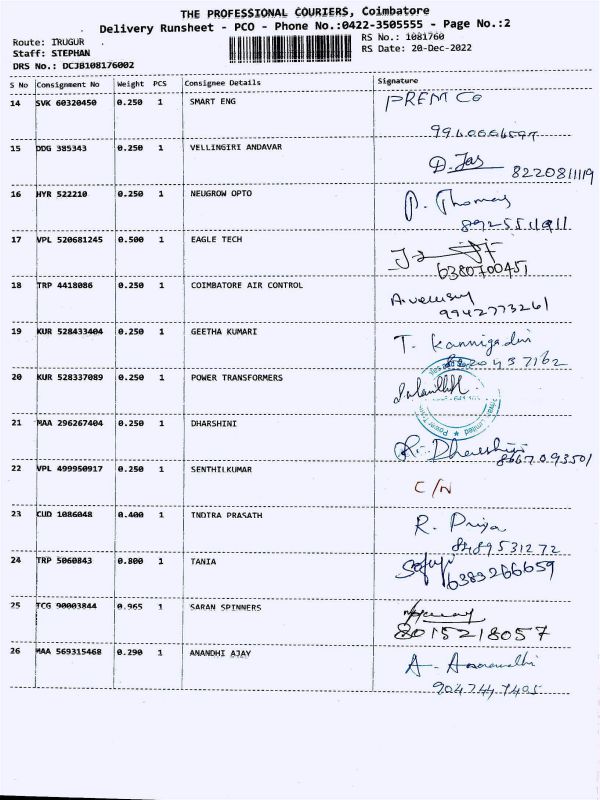 THE PROFESSIONAL COURIERS, Coimbatore
Delivery Runsheet - PCO - Phone No.:0422-3505555 - Page No.:2
Route: IRUGUR
RS No.: 1081760
Staff: STEPHAN
RS Date: 20-Dec-2022
DRS No.: DCJB108176002
S No Consignment No Weight PCS Consignee Details Signature
14 SVK 60320450 0.250 1 SMART ENG PREM Co
15 DDG 385343 0.250 1 VELLINGIRI ANDAVAR D. Jas
8220811119
16 HYR 522210 0.250 1 NEUGROW OPTO P. Thomas
17 VPL 520681245 0.500 1 EAGLE TECH
6380700451
18 TRP 4418086 0.250 1 COIMBATORE AIR CONTROL
9942773261
19 KUR 528433404 0.250 1 GEETHA KUMARI T.
20 KUR 528337089 0.250 1 POWER TRANSFORMERS
21 MAA 296267404 0.250 1 DHARSHINI R. Dharshini
8667093501
22 VPL 499950917 0.250 1 SENTHILKUMAR C/N
23 CUD 1086048 0.400 1 INDIRA PRASATH R. Priya
8489531272
24 TRP 5060843 0.800 1 TANIA
6383266659
25 TCG 90003844 0.965 1 SARAN SPINNERS
8015218057
26 MAA 569315468 0.290 1 ANANDHI AJAY A.
9047447495